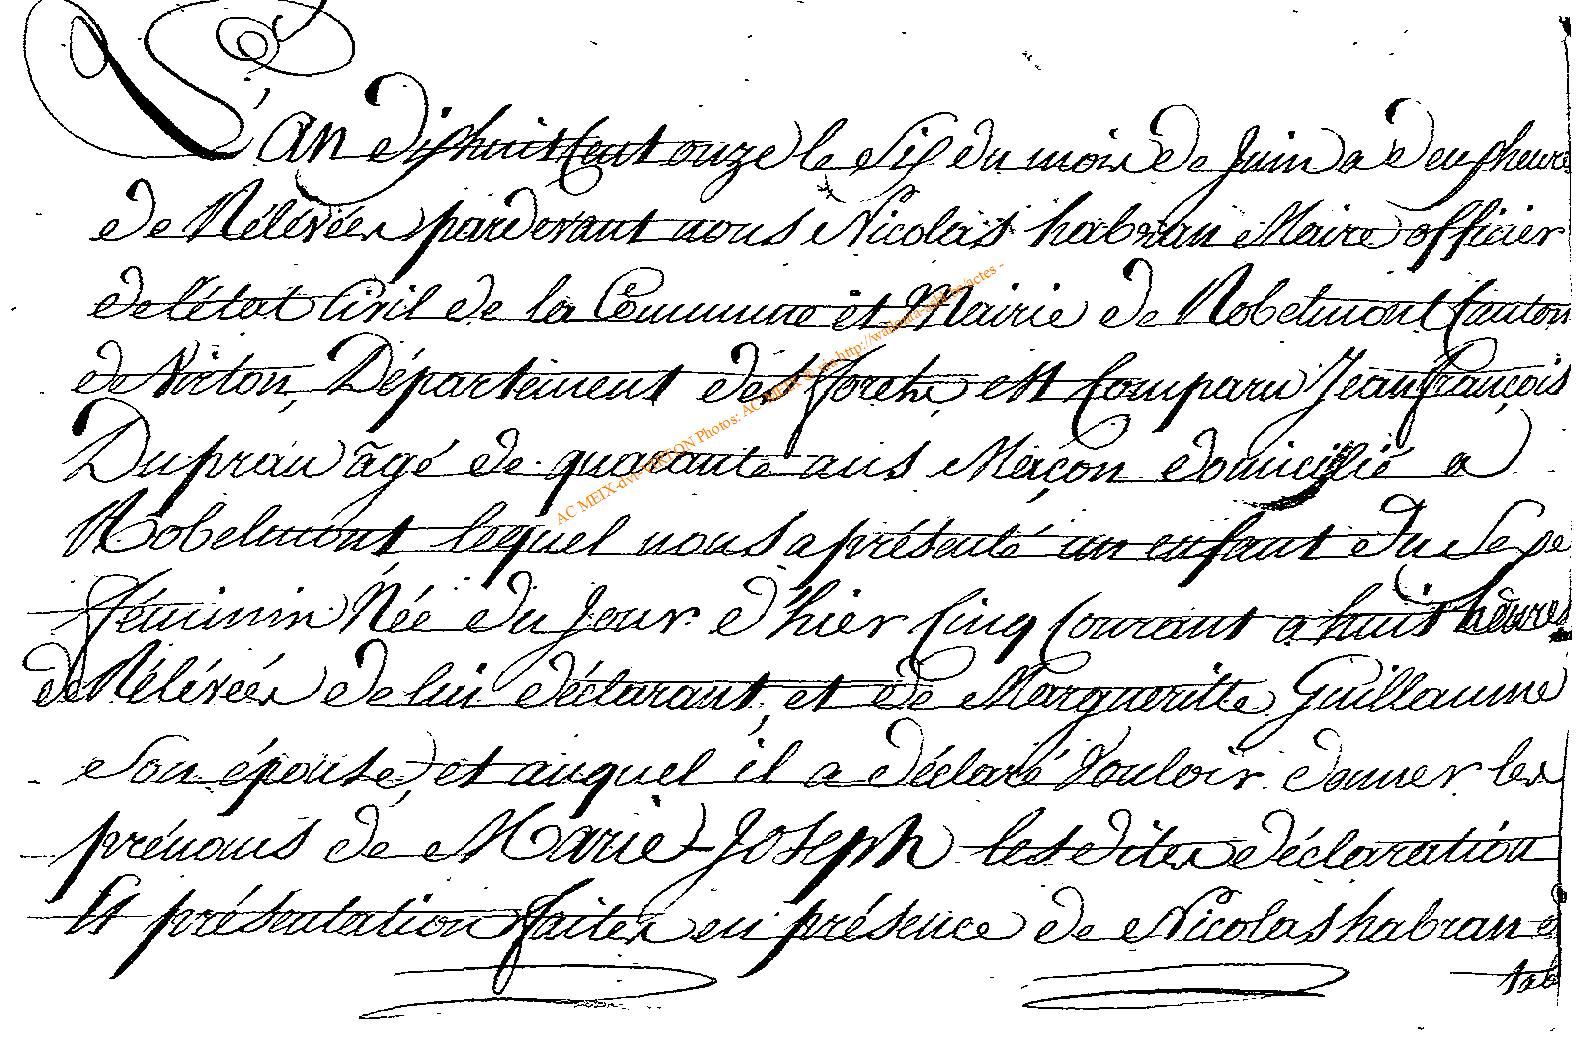 L'an dixhuit Cent onze le Six du mois de Juin a deux heures
de Rélévées pardevant nous Nicolas habran Maire officier
de l'état Civil de la Commune et Mairie de Robelmont Canton
de Virton, Département des forets, est Comparu Jean françois
Duprau âgé de quarante ans Maçon domicilié a
Robelmont, lequel nous a présenté un enfant du Sexe
féminin Née du Jour d'hier Cinq Courant a huit heures
de Rélévées de lui déclarant, et de Margueritte Guillaume
Son épouse, et auquel il a déclaré Vouloir donner les
prénoms de Marie-Joseph les dites déclaration
Et présentation faites en présence de Nicolas habran
AC MEIX-dvt-VIRTON Photos: AC MEIX &